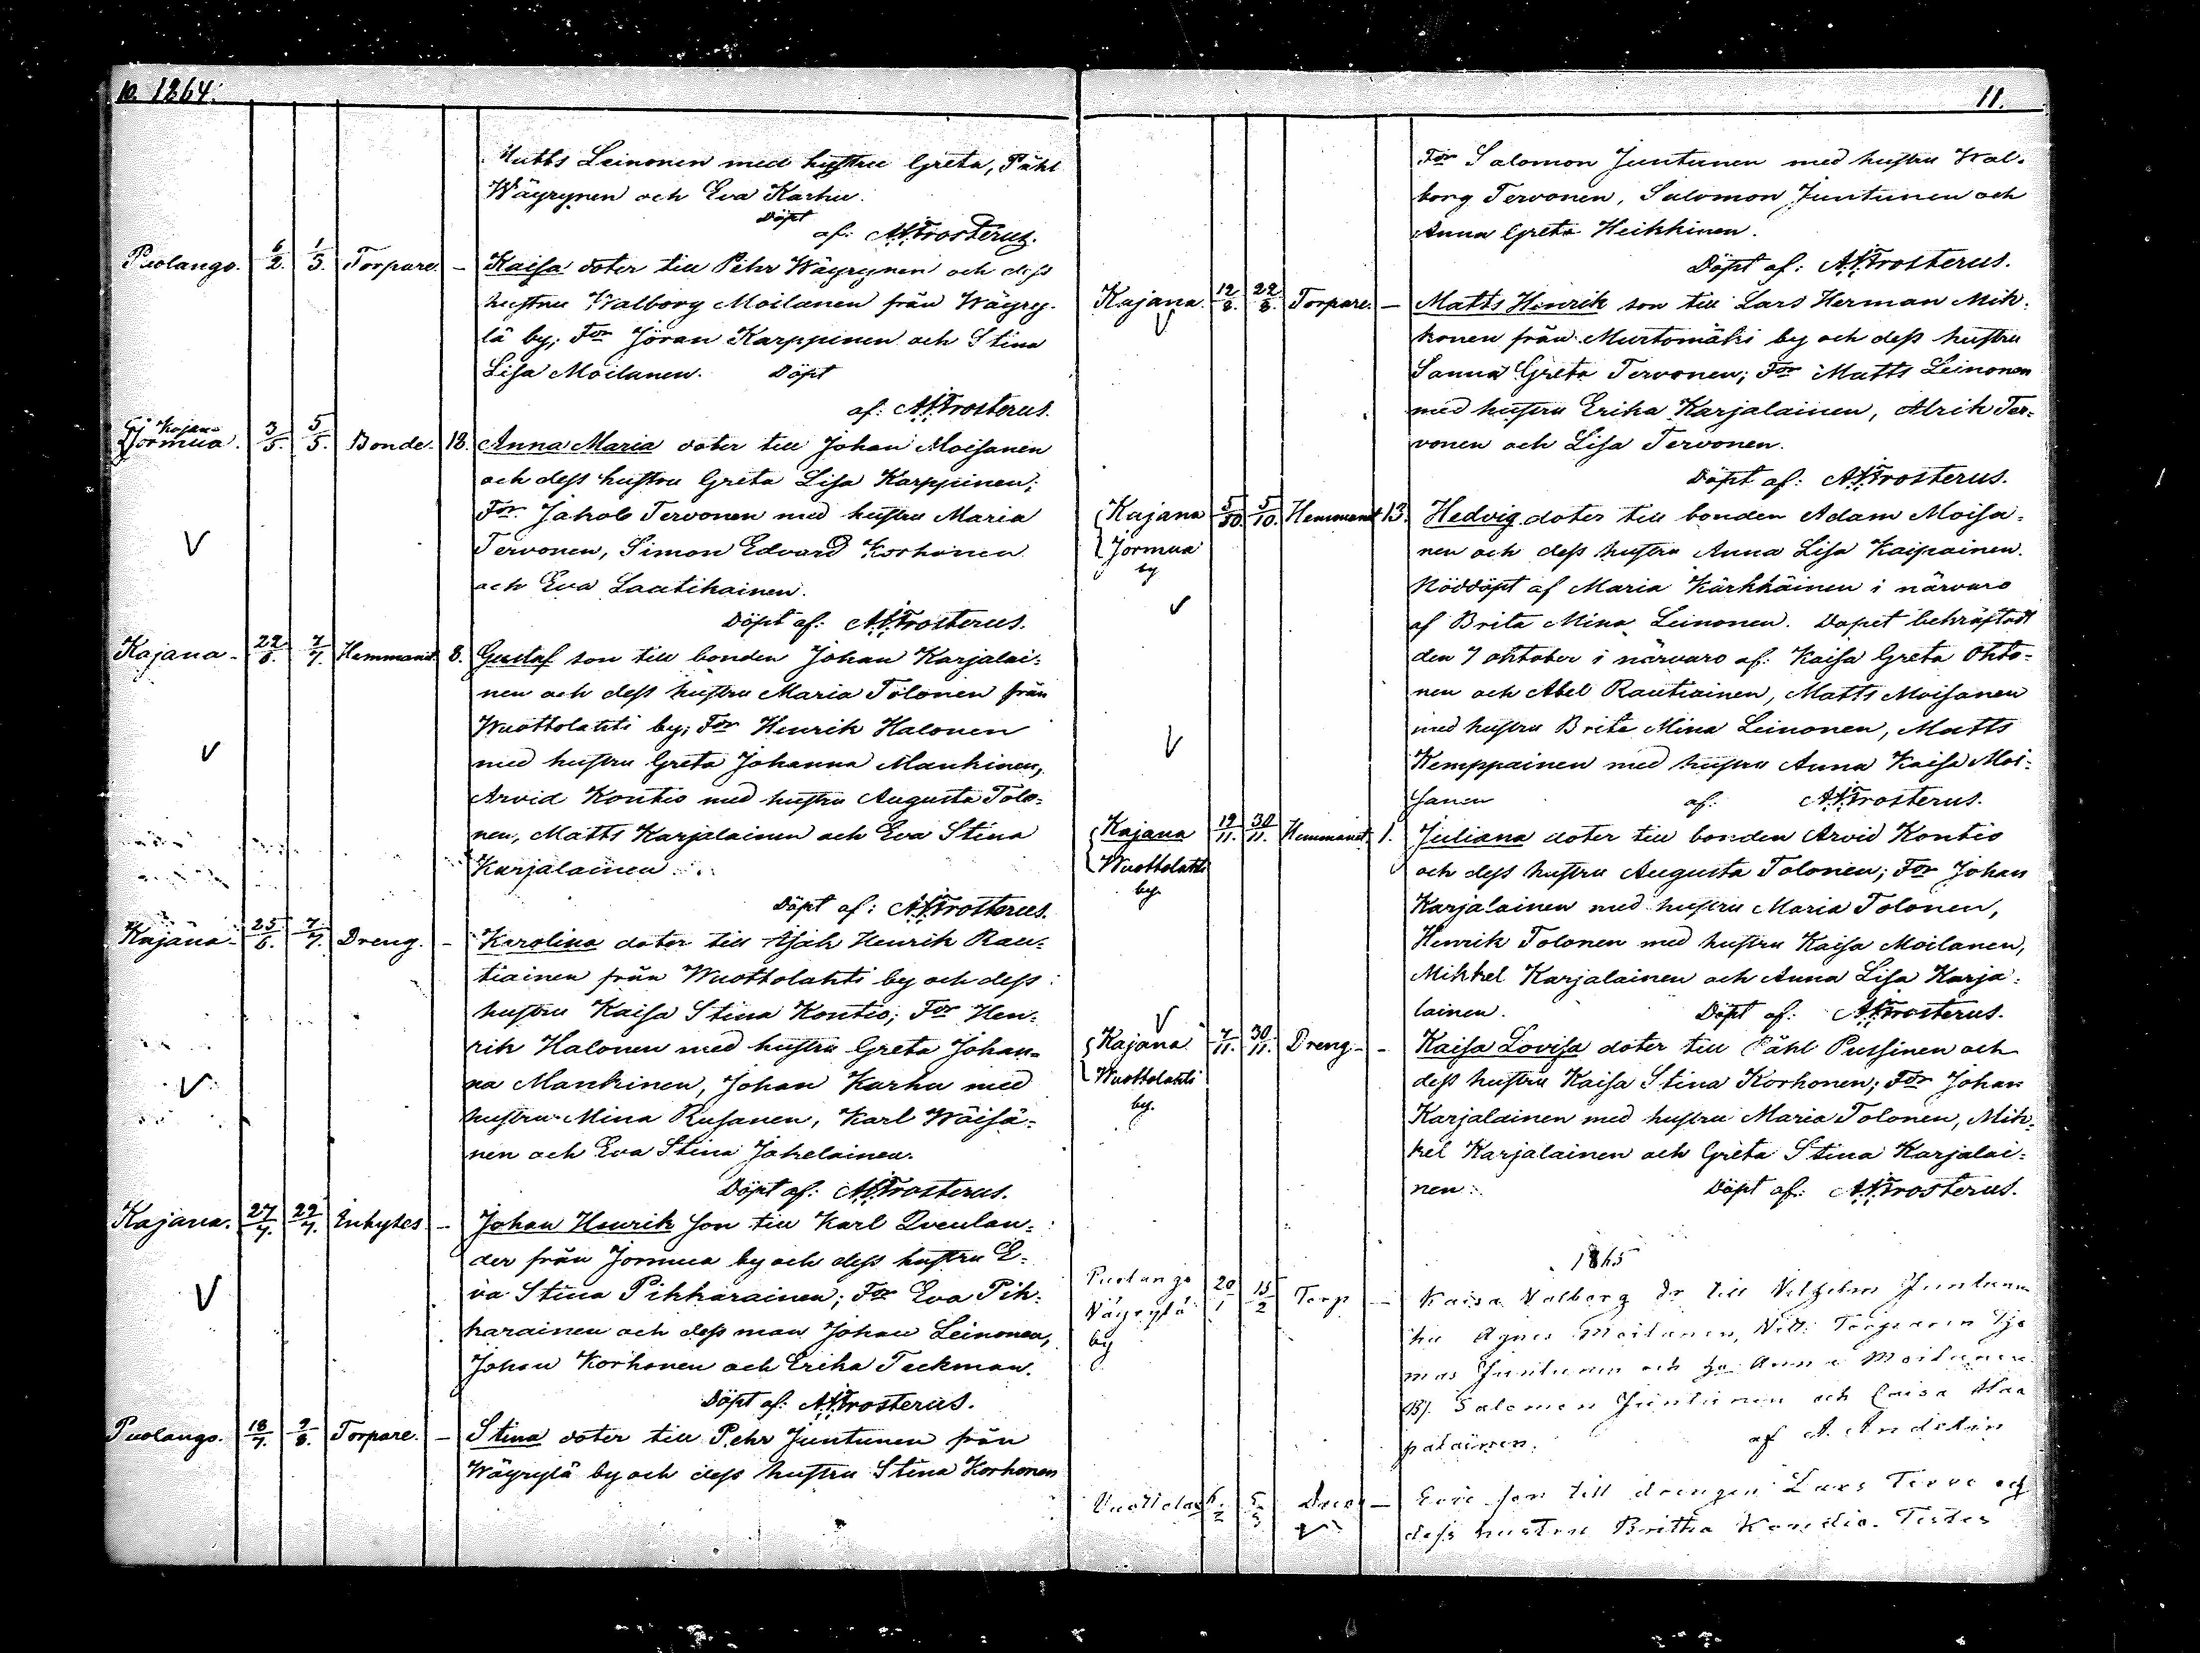 10. 1864.
Matts Leinonen med hustru Greta, Påhl
Wäyrynen och Eva Karhu.
Döpt
af: A. F. Frosterus.
Puolango. 6/2. 1/3. Torpare. – Kaisa doter till Pehr Wäyrynen och dess
hustru Walborg Moilanen från Wäyry-
lä by; For Jöran Karppinen och Stina
Lisa Moilanen. Döpt
af: A. F. Frosterus.
Kajana
Jormua. 3/5. 5/5. Bonde. 13. Anna Maria doter till Johan Moisanen
och dess hustru Greta Lisa Karppinen;
For Jakob Tervonen med hustru Maria
Tervonen, Simon Edvard Korhonen
och Eva Laatikainen.
Döpt af: A. F. Frosterus.
Kajana. 22/6. 7/7. Hemmand. 8. Gustaf son till bonden Johan Karjalai-
nen och dess hustru Maria Tolonen från
Wuottolahti by; For Henrik Halonen
med hustru Greta Johanna Mankinen,
Arvid Kontio med hustru Augusta Tolo-
nen, Matts Karjalainen och Eva Stina
Karjalainen.
Döpt af: A. F. Frosterus.
Kajana. 25/6. 7/7. Dreng. – Karolina doter till Isak Henrik Rau-
tiainen från Wuottolahti by och dess
hustru Kaisa Stina Kontio; For Hen-
rik Halonen med hustru Greta Johan-
na Mankinen, Johan Karhu med
hustru Mina Rusanen, Karl Wäisä-
nen och Eva Stina Jokelainen.
Döpt af: A. F. Frosterus.
Kajana. 27/7. 29/7. Inhyses – Johan Henrik son till Karl Qvenlan-
der från Jormua by och dess hustru E-
va Stina Pikkarainen; For Eva Pik-
karainen och dess man Johan Leinonen,
Johan Korhonen och Erika Teckman.
Döpt af: A. F. Frosterus.
Puolango. 18/7. 9/8. Torpare. – Stina doter till Pehr Juntunen från
Wäyrylä by och dess hustru Stina Korhonen
11.
For Salomon Juntunen med hustru Wal-
borg Tervonen, Salomon Juntunen och
Anna Greta Heikkinen.
Döpt af: A. F. Frosterus.
Kajana. 12/8. 22/8. Torpare. – Matts Henrik son till Lars Herman Mik-
konen från Murtomäki by och dess hustru
Sanna Greta Tervonen; For Matts Leinonen
med hustru Erika Karjalainen, Alrik Ter-
vonen och Lisa Tervonen.
Döpt af: A. F. Frosterus.
Kajana 5/10. 5/10. Hemmand 13. Hedvig doter till bonden Adam Moisa-
Jormua nen och dess hustru Anna Lisa Kaipainen.
by Nöddöpt af Maria Kärkkäinen i närvaro
af Brita Mina Leinonen. Dopet bekräftadt
den 7 oktober i närvaro af: Kaisa Greta Ohto-
nen och Abel Rautiainen, Matts Moisanen
med hustru Brita Mina Leinonen, Matts
Kemppainen med hustru Anna Kaisa Moi-
sanen af: A. F. Frosterus.
Kajana 19/11. 30/11. Hemmand. 1. Juliana doter till bonden Arvid Kontio
Wuottolahti och dess hustru Augusta Tolonen; For Johan
by. Karjalainen med hustru Maria Tolonen,
Henrik Tolonen med hustru Kaisa Moilanen,
Mikkel Karjalainen och Anna Lisa Karja-
lainen. Döpt af: A. F. Frosterus.
Kajana 7/11. 30/11. Dreng. – Kaisa Lovisa doter till Påhl Pussinen och
Wuottolahti dess hustru Kaisa Stina Korhonen; For Johan
by. Karjalainen med hustru Maria Tolonen, Mik-
kel Karjalainen och Greta Stina Karjalai-
nen. Döpt af: A. F. Frosterus.
1865
Puolango 20/1 15/2 Torp – Kaisa Valborg dr till Vilhelm Juntunen
Väyrylä hu Agnes Moilanen, Torparen
by mas Juntunen och hu Anna Moilanen
Salomon Juntunen och Caisa Haa
palainen. af A.
Vuottolax 5/3 Dreng – Eric son till drengen Lars Tervo och
dess hustru Britha Kondio. Testes